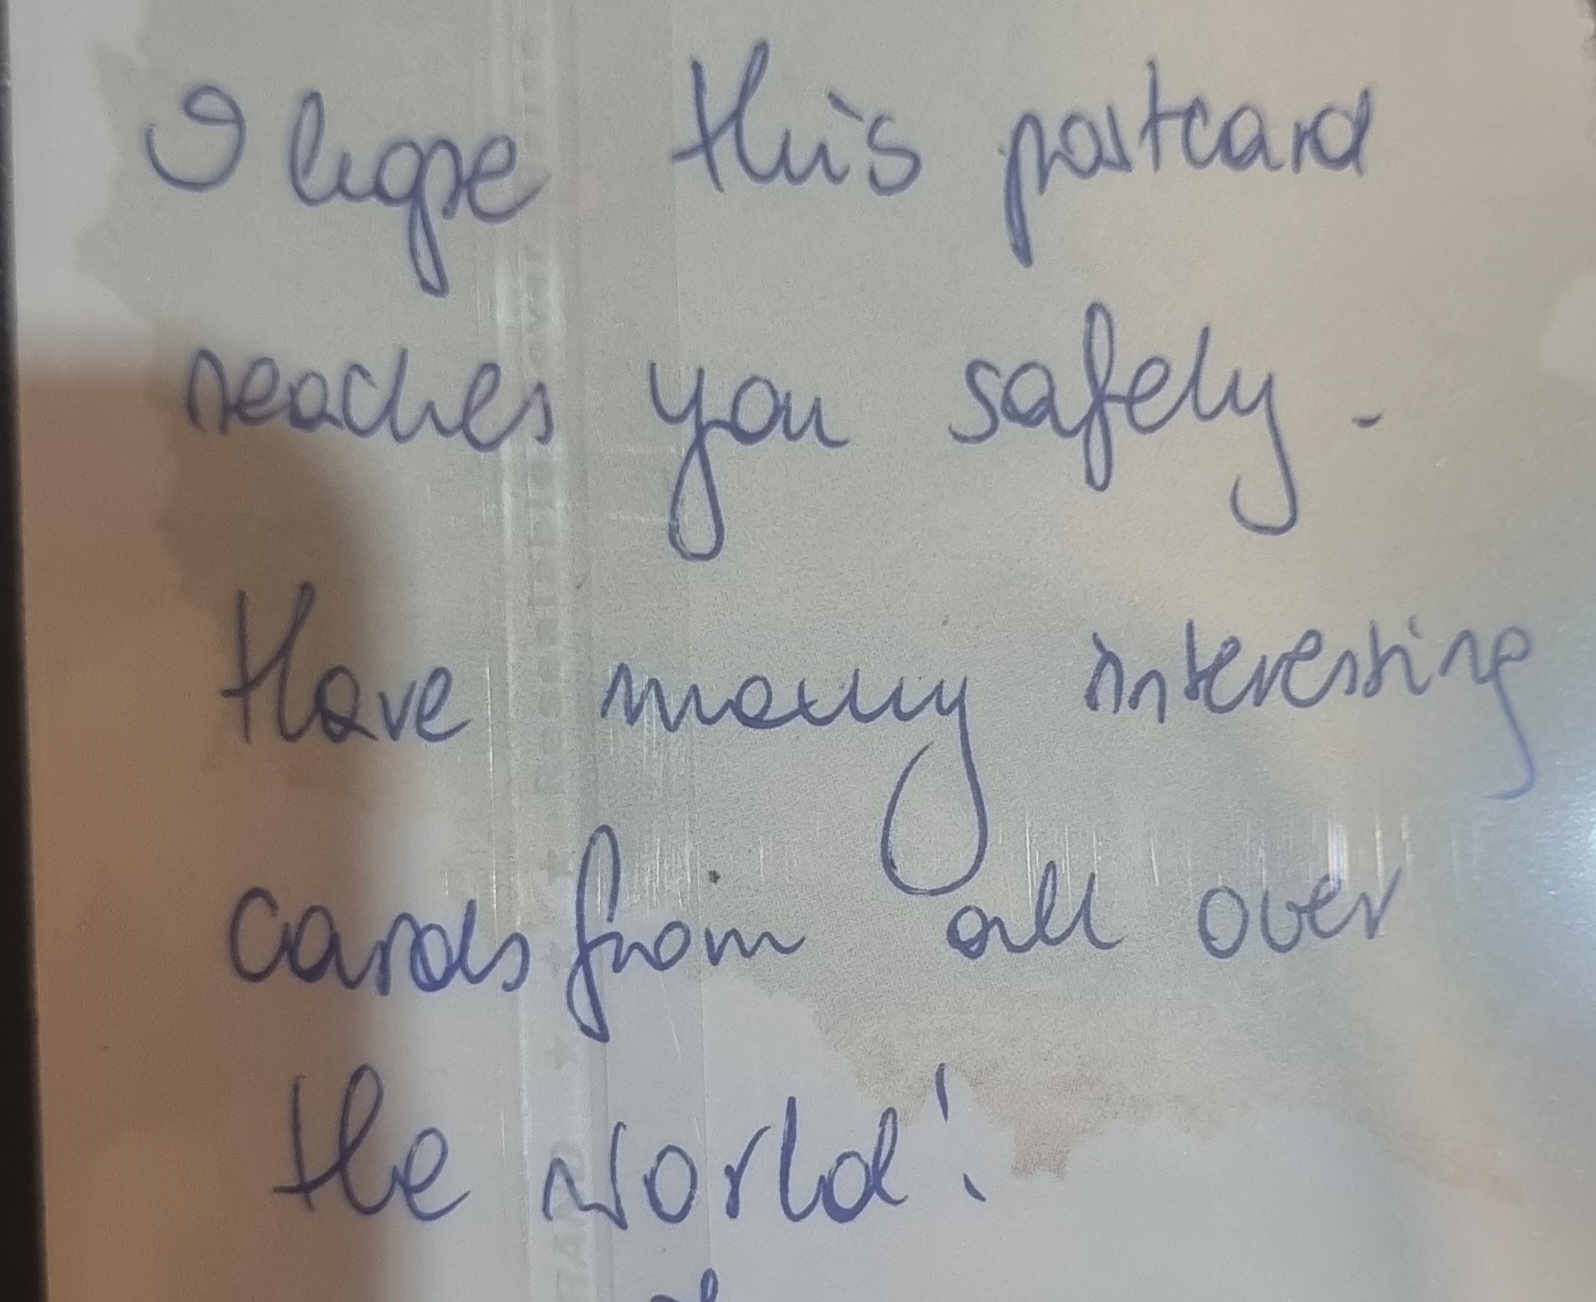 I hope this postcard
reaches you safely.
Have many interesting
cards from all over
the world!